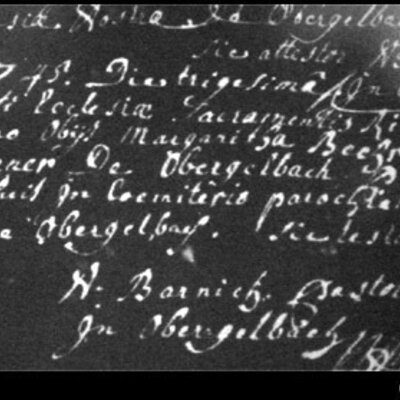 Nostra De Obergelbac
sic attestor
745. Die trigesimâ Jn
Ecclesiæ Sacramentis
Obijt Margaritha Beckr
ener De Obergelbach
Jn Coemiterio parochia
Obergelbach. Sic
N. Barnich. Pastor
Jn Obergelbach